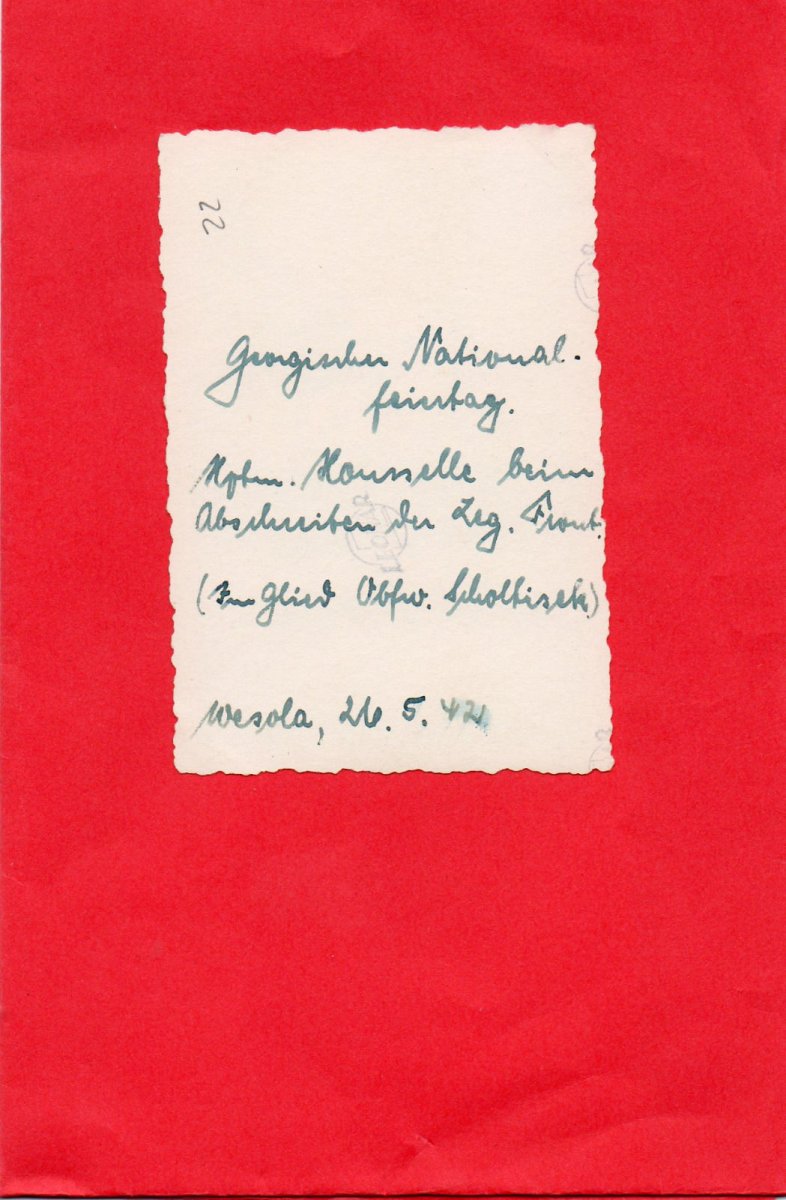 22
Georgischer National-
feiertag.
Hptm. Housselle beim
Abschreiten der Leg. Front.
(Im Glied Obfw. Scholtisek)
Wesola, 26. 5. 42